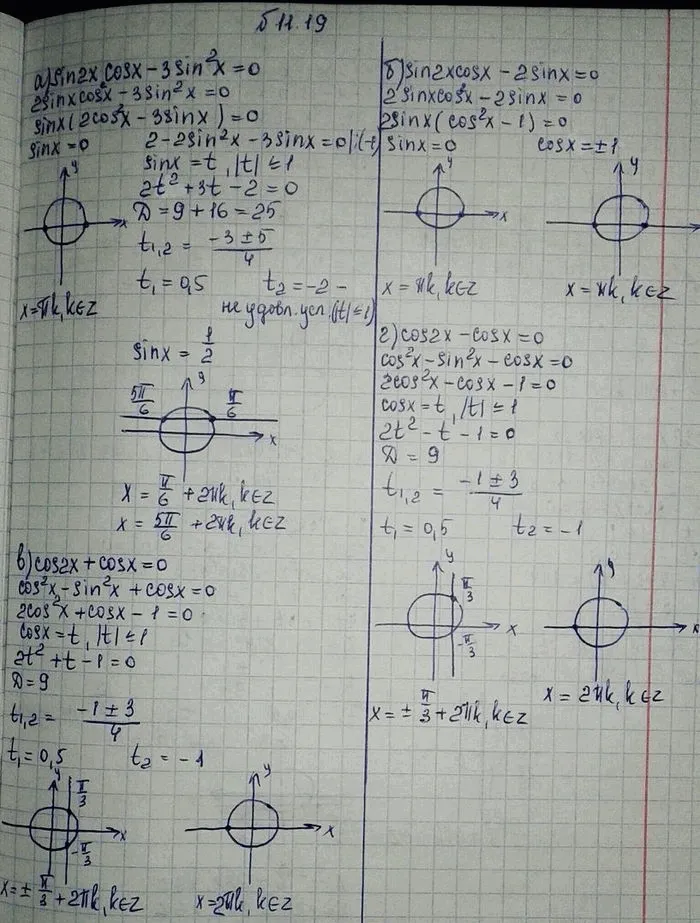 Б 11.19
а) sin2x cosx – 3sin²x = 0
2sinxcos²x – 3sin²x = 0
sinx(2cos²x – 3sinx) = 0
sinx = 0
2 – 2sin²x – 3sinx = 0 |:(-1)
sinx = t, |t| ≤ 1
2t² + 3t – 2 = 0
D = 9 + 16 = 25
t₁,₂ = (-3 ± 5)/4
t₁ = 0,5 t₂ = -2 –
не удовл. усл. (|t| ≤ 1)
y
x
x = πk, k∈Z
sinx = 1/2
5π/6
y
π/6
x
x = π/6 + 2πk, k∈Z
x = 5π/6 + 2πk, k∈Z
в) cos2x + cosx = 0
cos²x – sin²x + cosx = 0
2cos²x + cosx – 1 = 0
cosx = t, |t| ≤ 1
2t² + t – 1 = 0
D = 9
t₁,₂ = (-1 ± 3)/4
t₁ = 0,5 t₂ = -1
y
π/3
x
-π/3
x = ± π/3 + 2πk, k∈Z
y
x
x = 2πk, k∈Z
б) sin2xcosx – 2sinx = 0
2sinxcos²x – 2sinx = 0
2sinx(cos²x – 1) = 0
sinx = 0 cosx = ±1
y
x
x = πk, k∈Z
y
x
x = πk, k∈Z
г) cos2x – cosx = 0
cos²x – sin²x – cosx = 0
2cos²x – cosx – 1 = 0
cosx = t, |t| ≤ 1
2t² – t – 1 = 0
D = 9
t₁,₂ = (-1 ± 3)/4
t₁ = 0,5 t₂ = -1
y
π/3
x
-π/3
x = ± π/3 + 2πk, k∈Z
y
x
x = 2πk, k∈Z